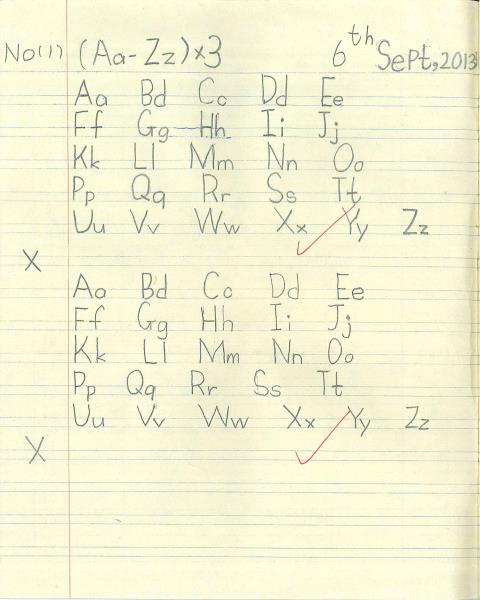 No(1) (Aa-Zz)×3 6th Sept,2013
Aa Bd Cc Dd Ee
Ff Gg Hh Ii Jj
Kk Ll Mm Nn Oo
Pp Qq Rr Ss Tt
Uu Vv Ww Xx Yy Zz
X
Aa Bd Cc Dd Ee
Ff Gg Hh Ii Jj
Kk Ll Mm Nn Oo
Pp Qq Rr Ss Tt
Uu Vv Ww Xx Yy Zz
X